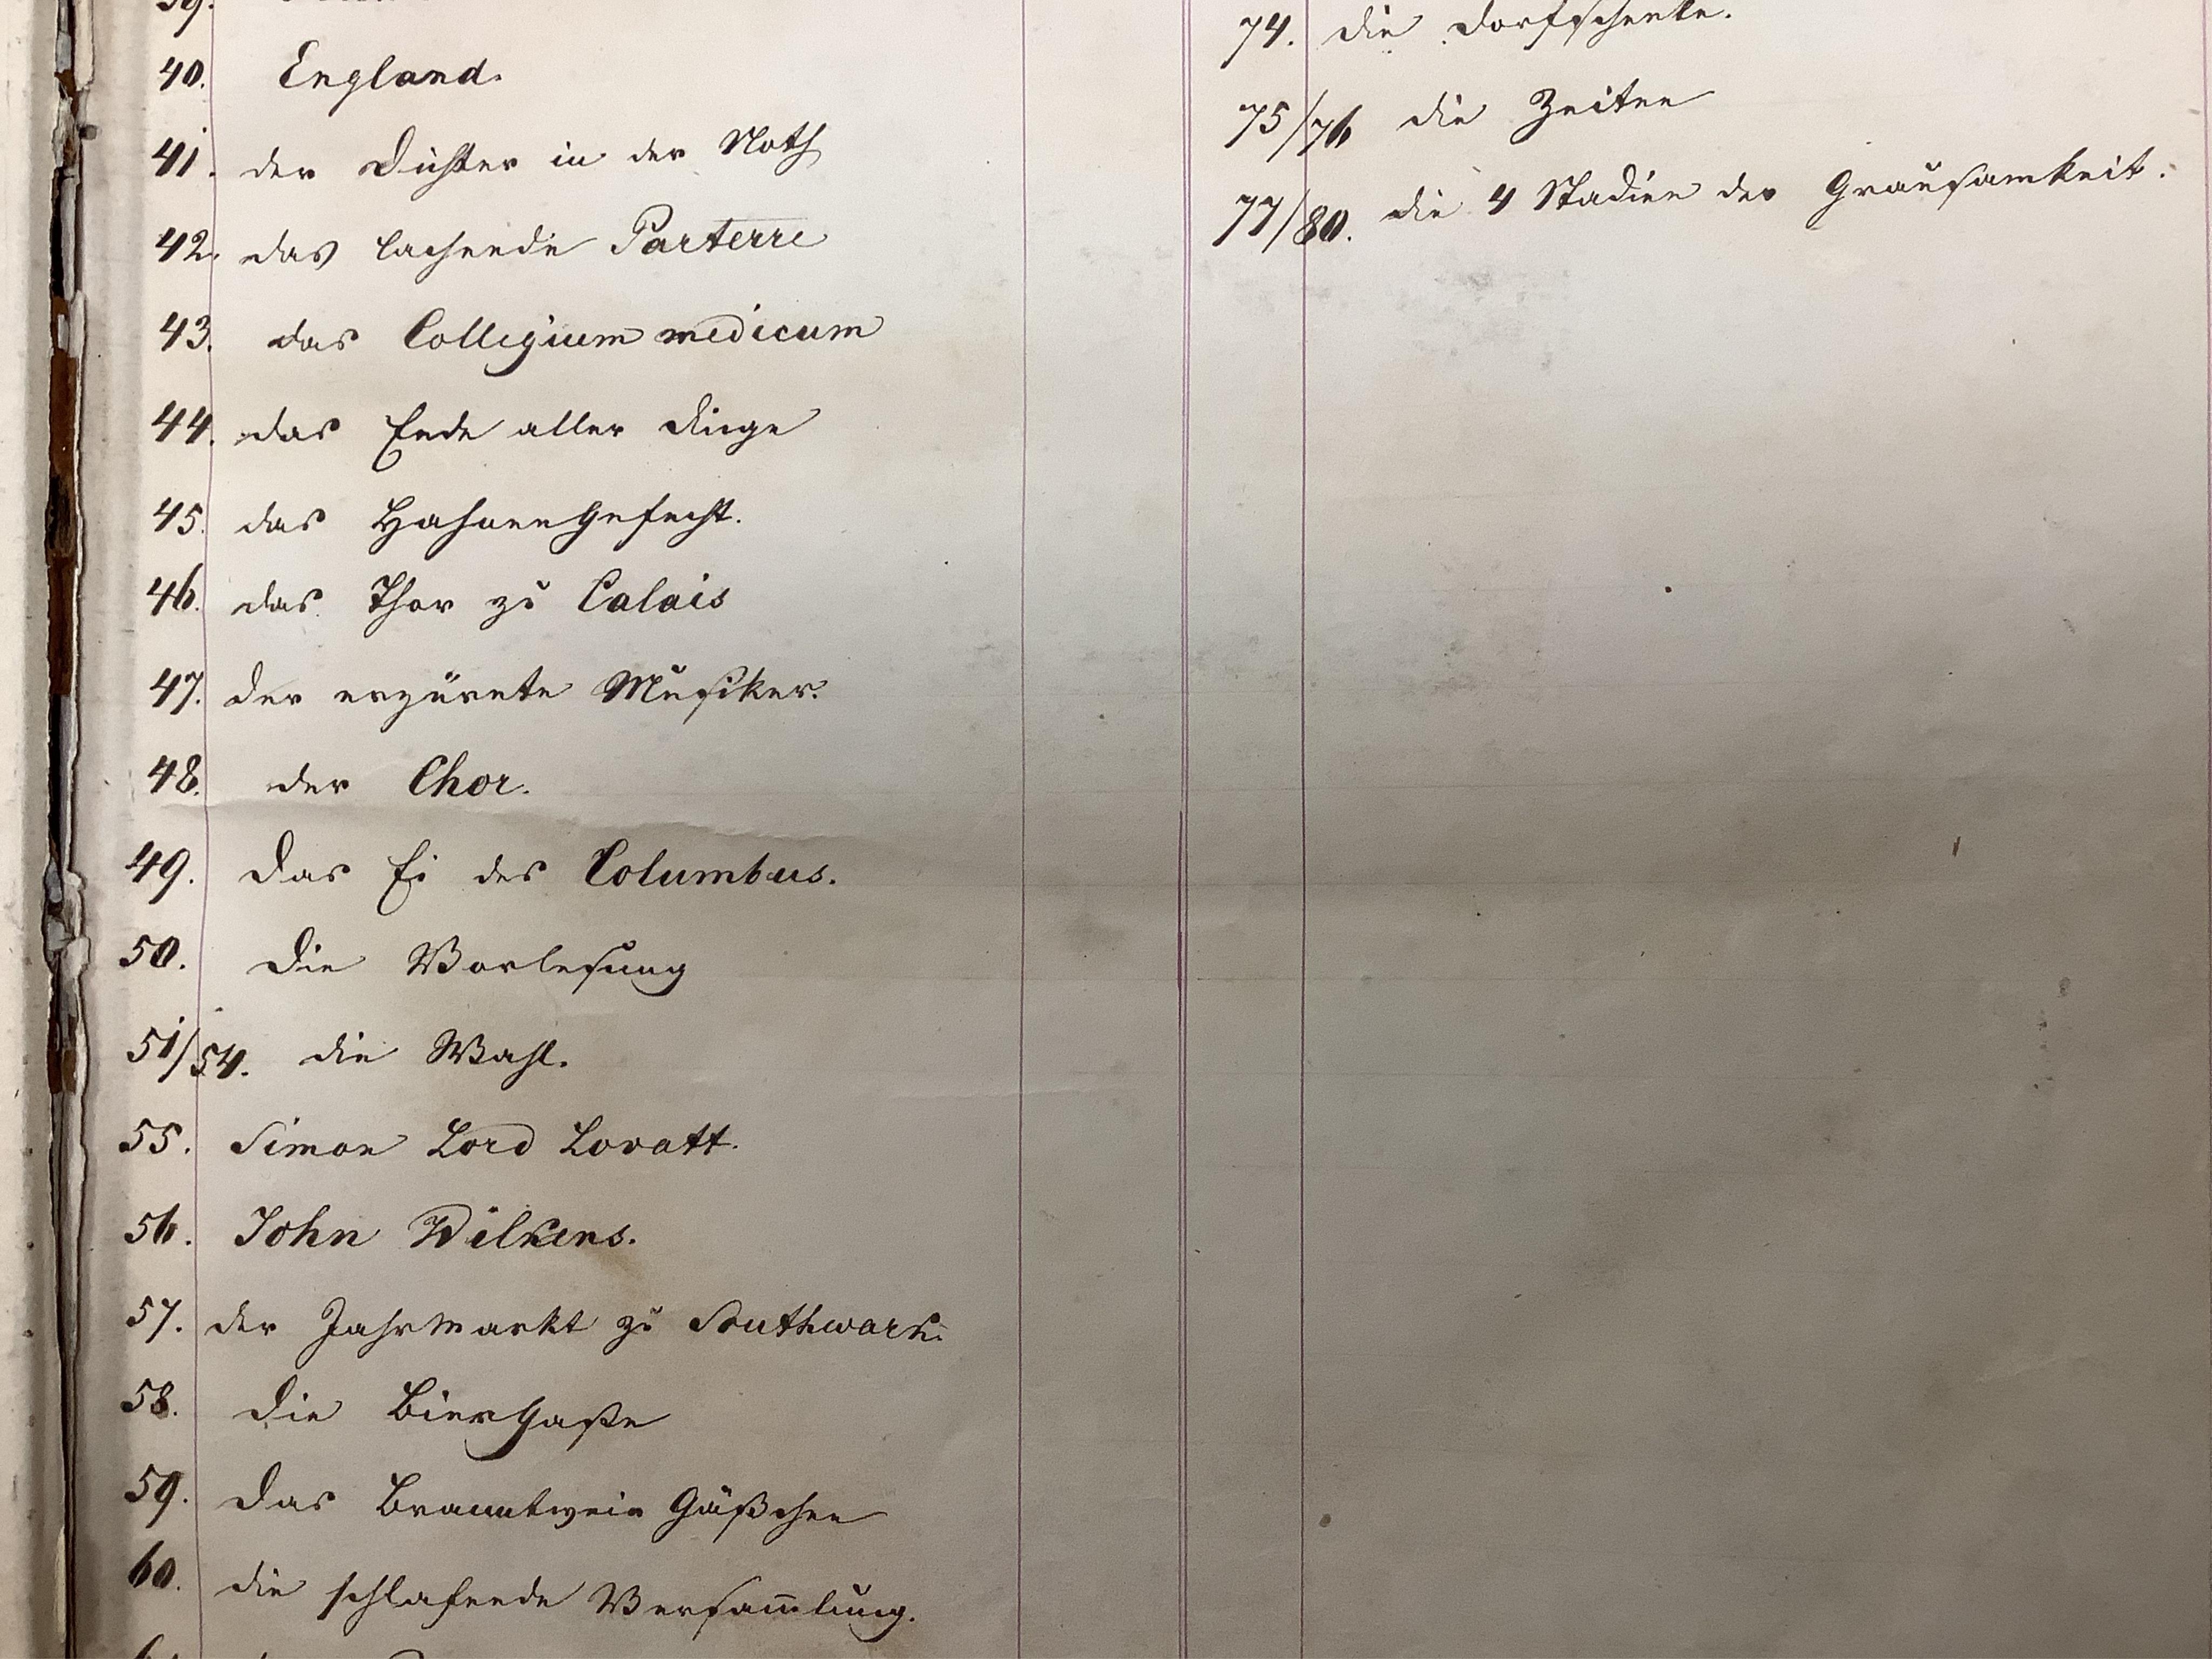 39.
40. England.
41. der Dichter in der Noth
42. das lachende Parterre
43. das Collegium medicum
44. das Ende aller Dinge
45. das HahnenGefecht.
46. das Thor zu Calais
47. der erzürnte Musiker.
48. der Chor.
49. Das Ei des Columbus.
50. Die Vorlesung
51/54. die Wahl.
55. Simon Lord Lovatt.
56. John Wilkens.
57. der Jahrmarkt zu Southwark.
58. Die BierGaße
59. Das Branntwein Gäßchen
60. die schlafende Versam̄lung.
74. die Dorfschenke.
75/76 die Zeiten
77/80. die 4 Stadien der Grausamkeit.